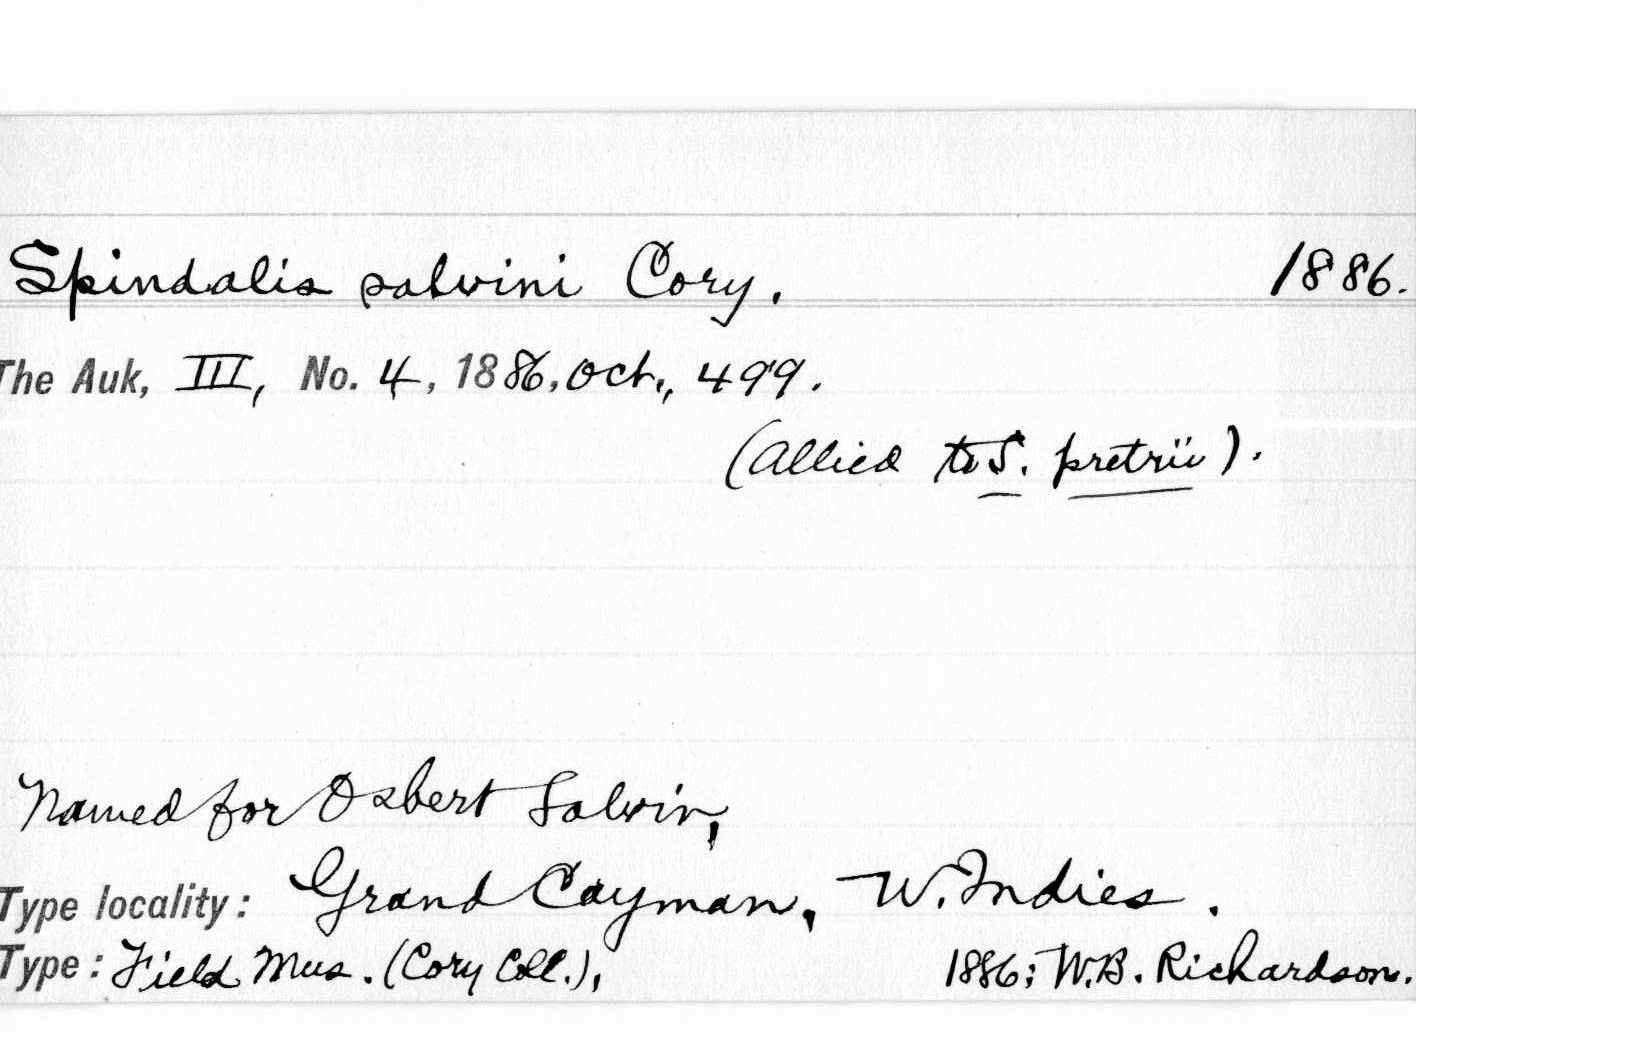 Spindalis salvini Cory. 1886.
The Auk, III, No. 4, 1886, Oct., 499.
(Allied to S. pretrii).
Named for Osbert Salvin,
Type locality: Grand Cayman, W. Indies.
Type: Field Mus. (Cory Coll.), 1886; W.B. Richardson.